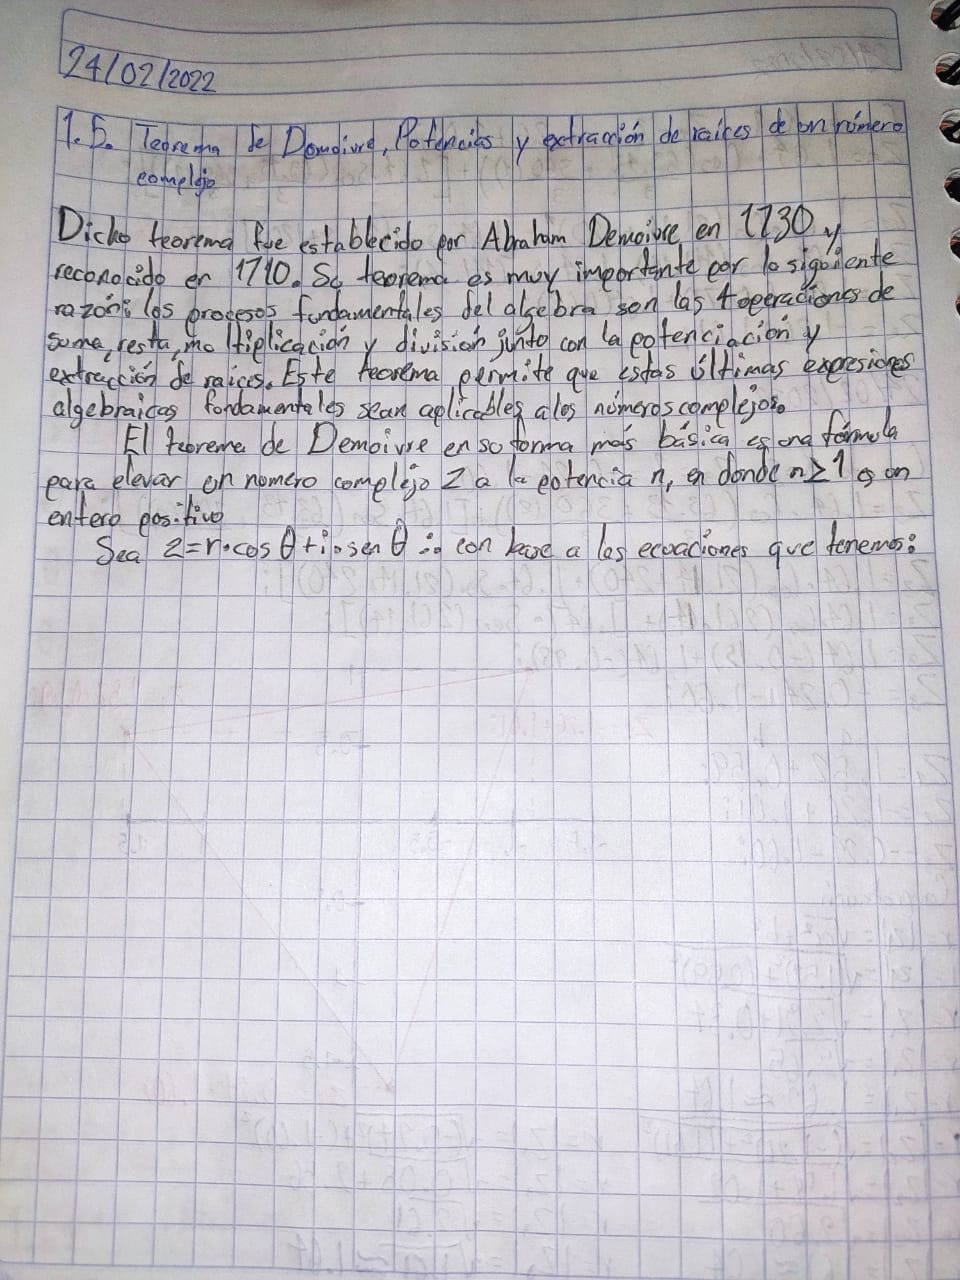 24/02/2022
1.5. Teorema de Demoivre, Potencias y extracción de raíces de un número
complejo
Dicho teorema fue establecido por Abraham Demoivre en 1730 y
reconocido en 1710. Su teorema es muy importante por lo siguiente
razón: los procesos fundamentales del algebra son las 4 operaciones de
suma, resta, multiplicación y división junto con la potenciación y
extracción de raíces. Este teorema permite que estas últimas expresiones
algebraicas fundamentales sean aplicables a los números complejos.
El teorema de Demoivre en su forma más básica es una fórmula
para elevar un numero complejo Z a la potencia n, en donde n≥1 es un
entero positivo
Sea z=r·cos θ+i·sen θ ∴ con base a las ecuaciones que tenemos: